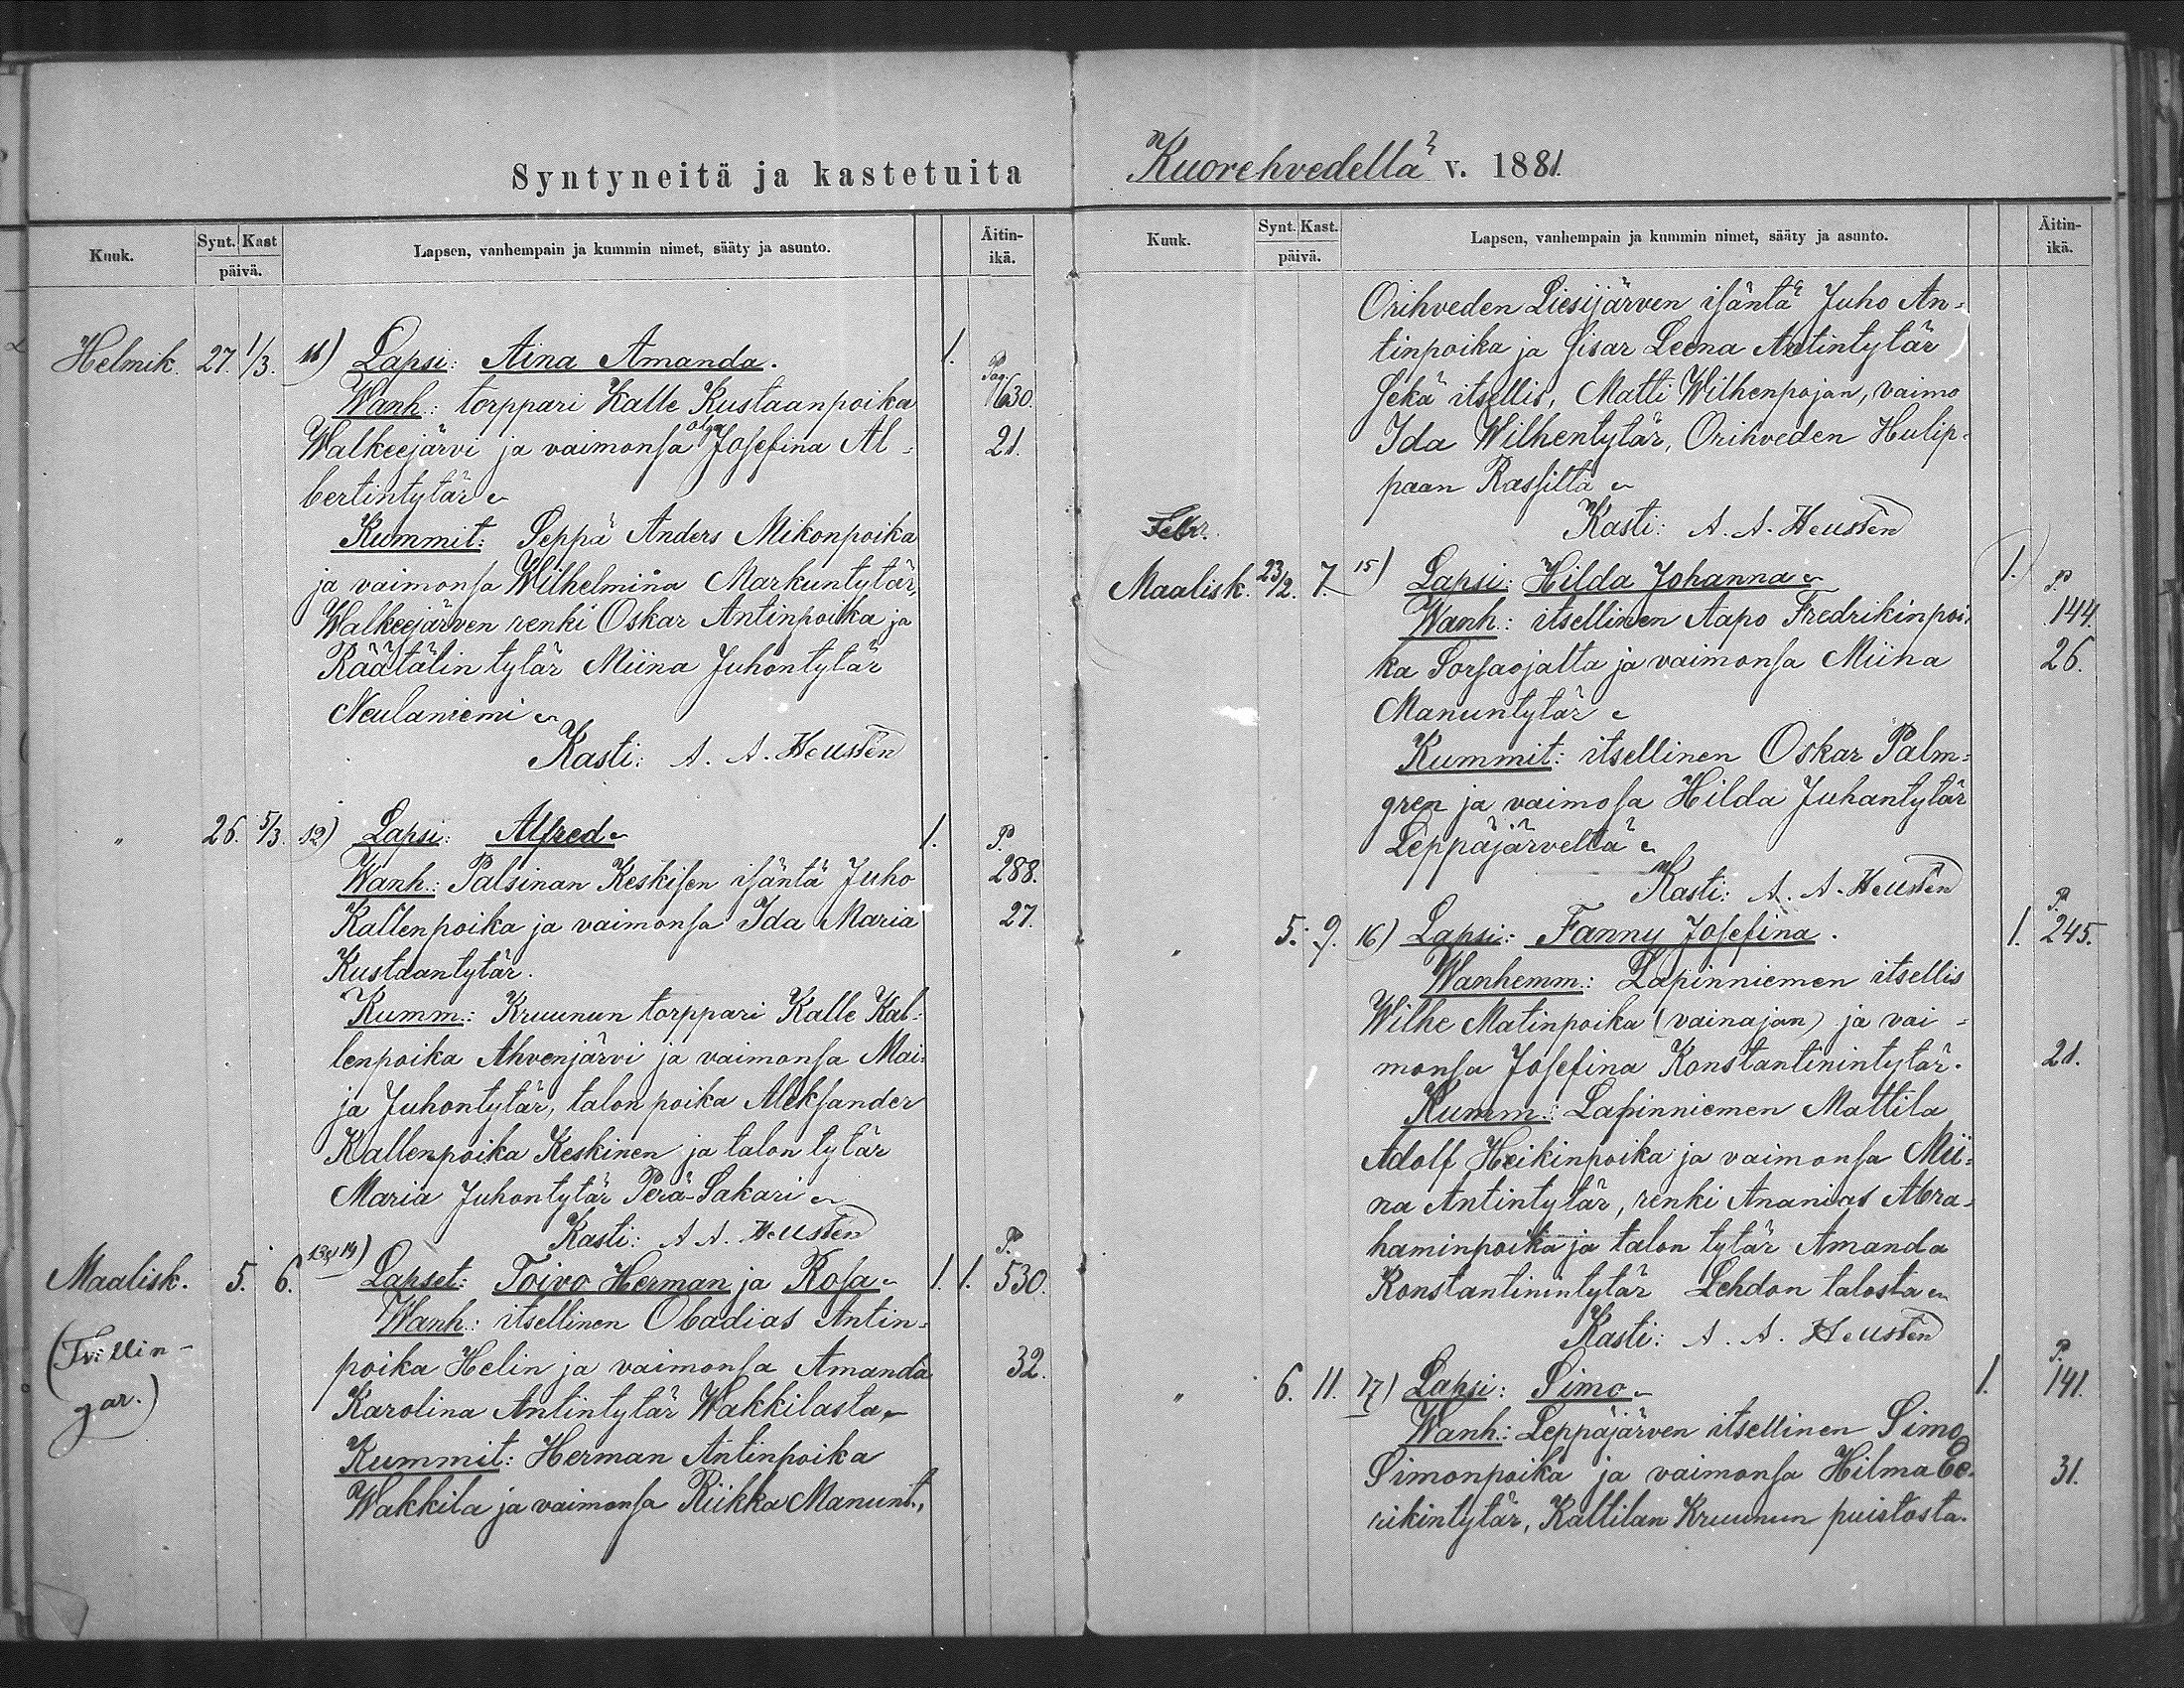 Syntyneitä ja kastetuita
Kuuk.
Synt. Kast
päivä.
Lapsen, vanhempain ja kummin nimet, sääty ja asunto.
Äitin-
ikä.
Helmik. 27. 1/3. 11) Lapsi: Aina Amanda. 1. Pag.
Wanh.: torppari Kalle Kustaanpoika 630.
Walkeejärvi ja vaimonsa Olga Josefina Al= 21.
bertintytär
Kummit: Seppä Anders Mikonpoika
ja vaimonsa Wilhelmina Markuntytär,
Walkeejärven renki Oskar Antinpoika ja
Räätälin tytär Miina Juhontytär
Neulaniemi
Kasti: A. A. Heusten
" 26. 5/3. 12) Lapsi: Alfred 1. P.
Wanh.: Palsinan Keskisen isäntä Juho 288.
Kallenpoika ja vaimonsa Ida Maria 27.
Kustaantytär.
Kumm.: Kruunun torppari Kalle Kal=
lenpoika Ahvenjärvi ja vaimonsa Mai=
ja Juhontytär, talon poika Aleksander
Kallenpoika Keskinen ja talon tytär
Maria Juhontytär Perä-Sakari
Kasti: A. A. Heusten
Maalisk. 5. 6. 13 & 14) Lapset: Toivo Herman ja Rosa 1. 1. P. 530.
Wanh.: itsellinen Obadias Antin=
(Tvillin-
poika Helin ja vaimonsa Amanda 32.
gar.)
Karolina Antintytär Wakkilasta
Kummit: Herman Antinpoika
Wakkila ja vaimonsa Riikka Manunt.,
Kuorehvedellä v. 1881.
Kuuk.
Synt. Kast.
päivä.
Lapsen, vanhempain ja kummin nimet, sääty ja asunto.
Äitin-
ikä.
Orihveden Liesijärven isäntä Juho An=
tinpoika ja sisar Leena Antintytär
sekä itsellis, Matti Wilhenpojan, vaimo
Ida Wilhentytär, Orihveden Hulip=
paan Rassilta
Kasti: A. A. Heusten
Febr.
Maalisk. 23/2. 7. 15) Lapsi: Hilda Johanna 1. P.
Wanh.: itsellinen Aapo Fredrikinpoi= 144.
ka Sorsaojalta ja vaimonsa Miina 26.
Manuntytär
Kummit: itsellinen Oskar Palm=
gren ja vaimosa Hilda Juhantytär
Leppäjärveltä
Kasti: A. A. Heusten
" 5. 9. 16) Lapsi: Fanny Josefina. 1. P. 245.
Wanhemm.: Lapinniemen itsellis
Wilhe Matinpoika (vainajan) ja vai=
monsa Josefina Konstantinintytär. 21.
Kumm.: Lapinniemen Mattila
Adolf Heikinpoika ja vaimonsa Mii=
na Antintytär, renki Ananias Abra=
haminpoika ja talon tytär Amanda
Konstantinintytär Lehdon talosta
Kasti: A. A. Heusten
" 6. 11. 17) Lapsi: Simo 1. P. 141.
Wanh.: Leppäjärven itsellinen Simo
Simonpoika ja vaimonsa Hilma Ee= 31.
rikintytär, Kallilan Kruunun puistosta.